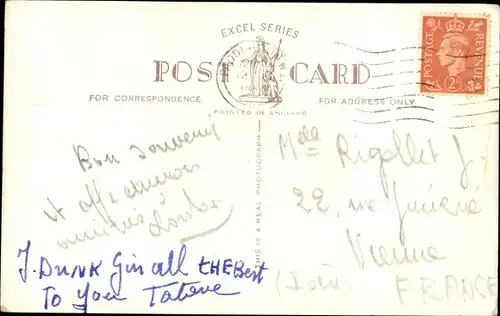 EXCEL SERIES
POST CARD
FOR CORRESPONDENCE
FOR ADDRESS ONLY
PRINTED IN ENGLAND
THIS IS A REAL PHOTOGRAPH
POSTAGE REVENUE
2D
Bon souvenir
et affectueuses
amitiés
J. DUNK Gin all THE Best
To You
Melle Rigollet J.
22, rue
Vienne
(Isère) FRANCE